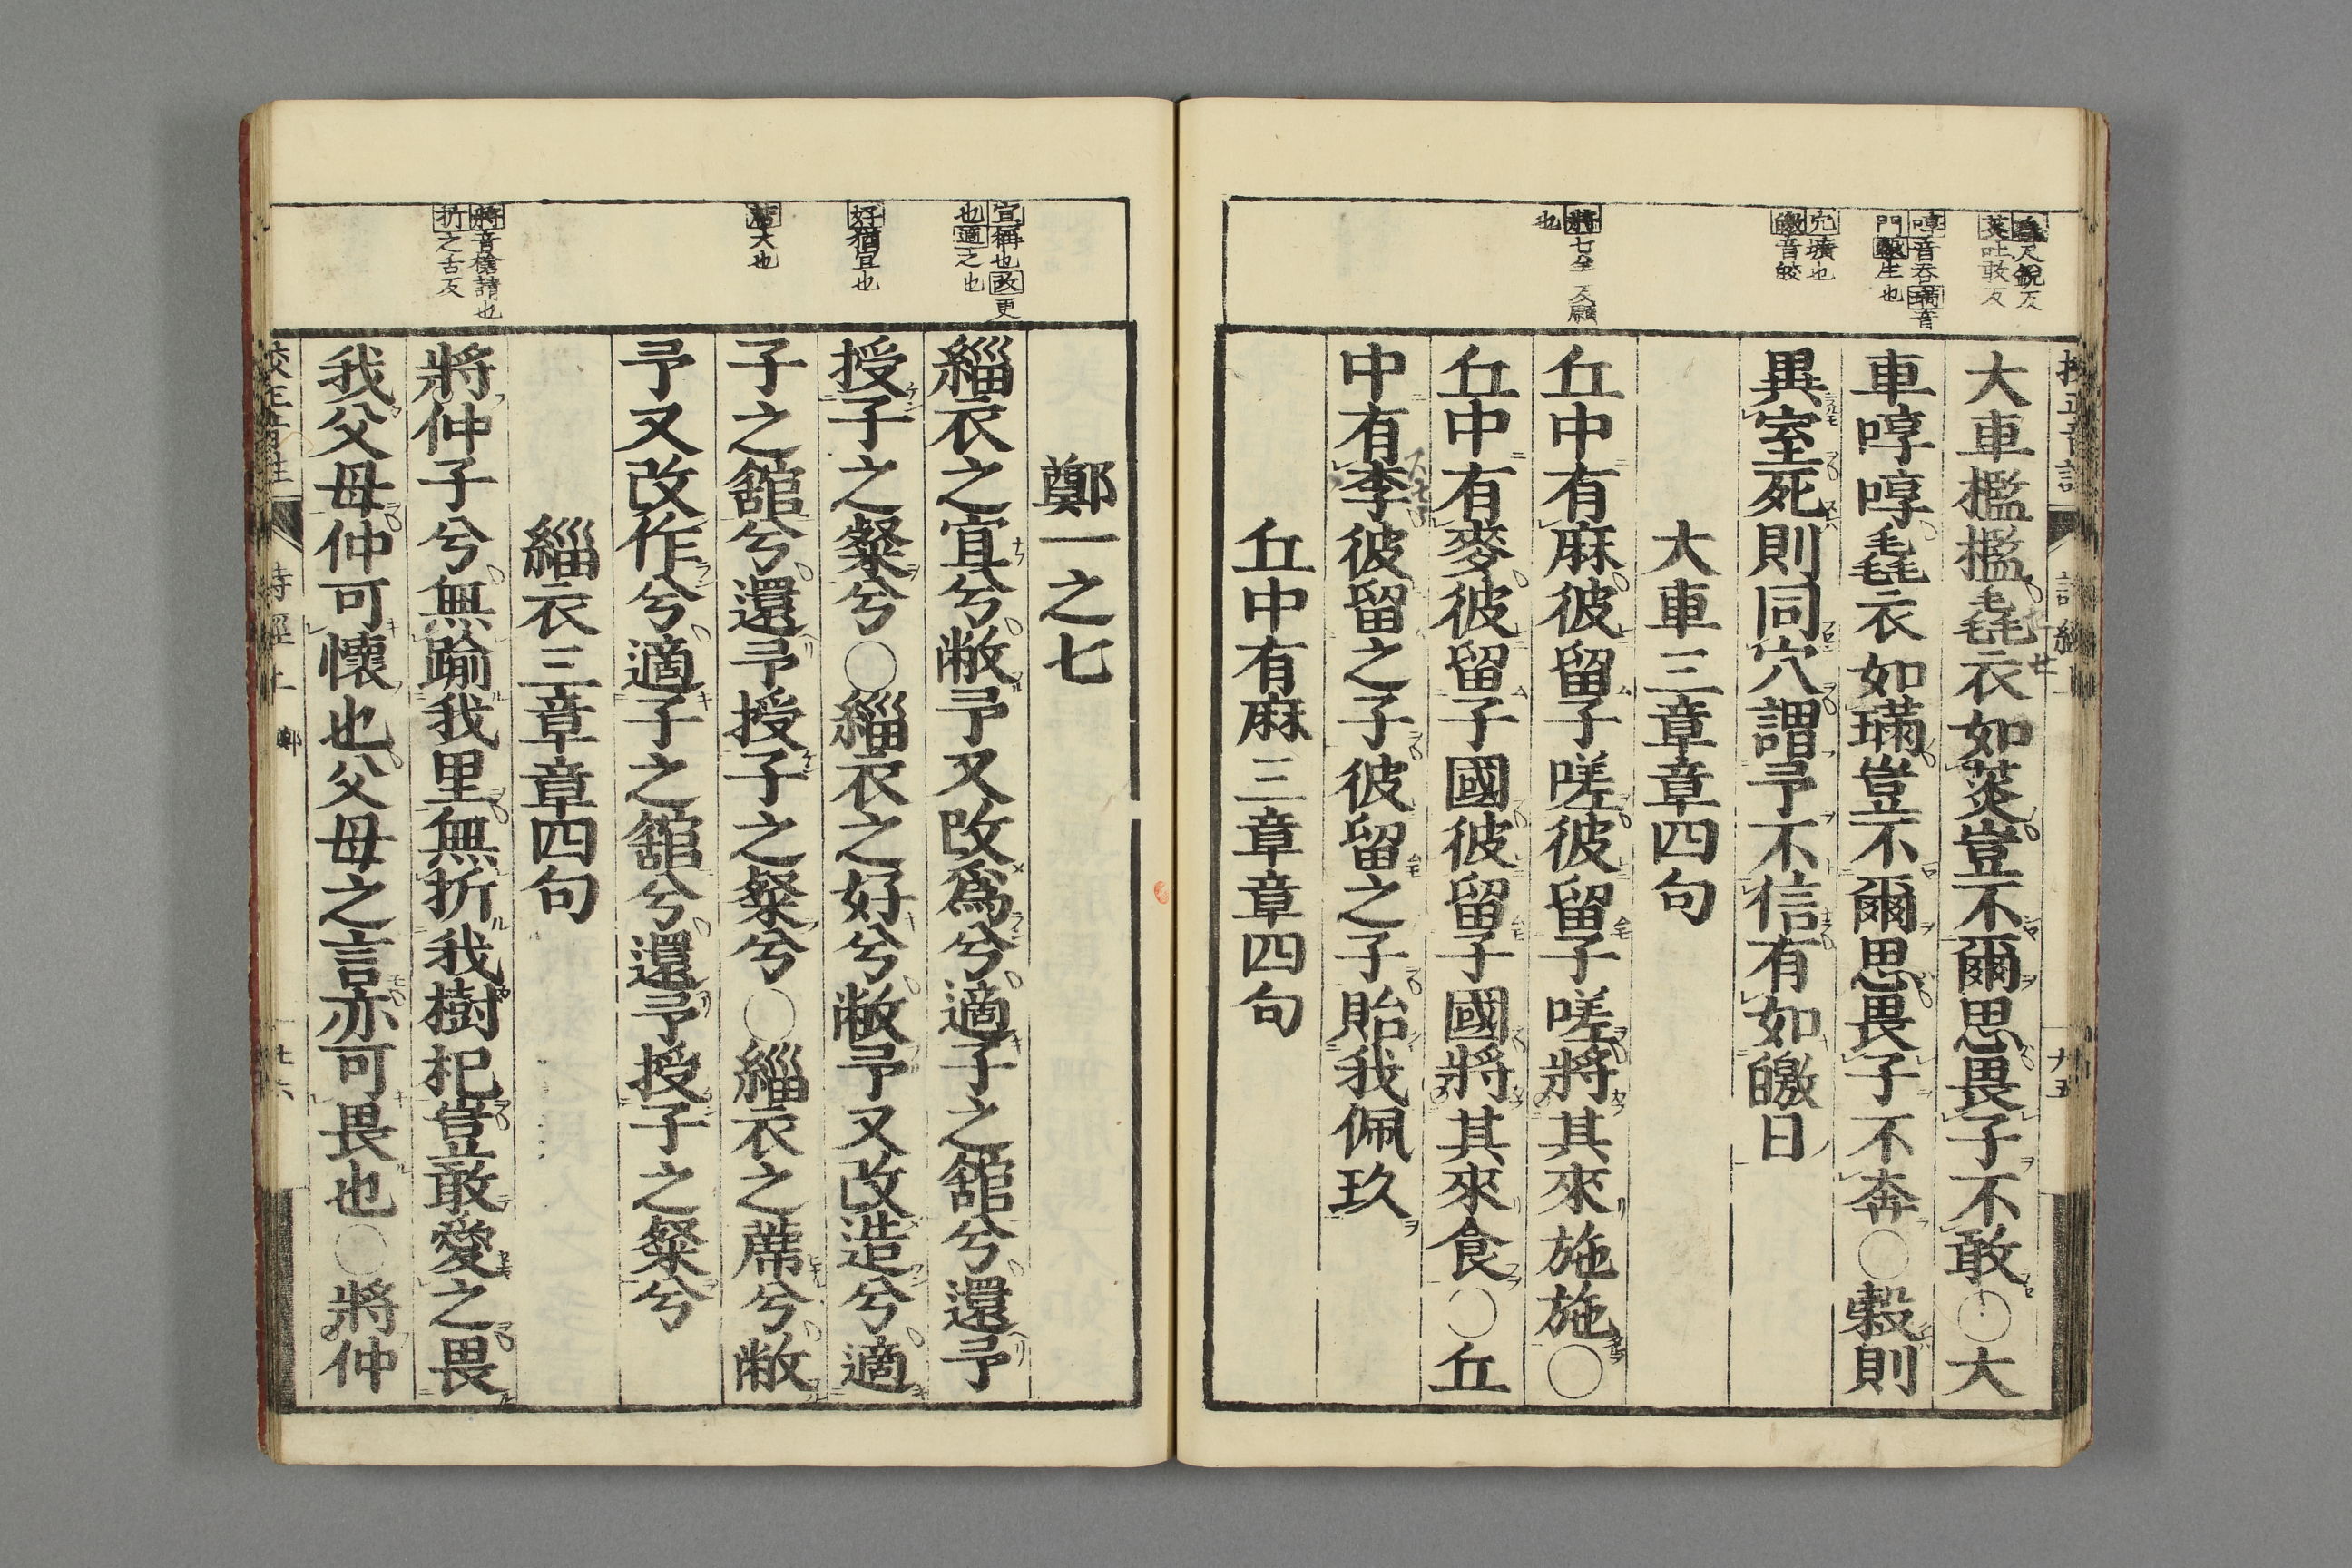 毳尺銳反
菼吐敢反
啍音吞璊音
門穀生也
穴壙也
皦音皎
將七羊反願
也
大車檻檻毳衣如菼豈不爾思畏子不敢○大
車啍啍毳衣如璊豈不爾思畏子不奔○榖則
異室死則同穴謂予不信有如皦日
大車三章章四句
丘中有麻彼留子嗟彼留子嗟將其來施施○
丘中有麥彼留子國彼留子國將其來食○丘
中有李彼留之子彼留之子貽我佩玖
丘中有麻三章章四句
宜稱也改更
也適之也
好猶宜也
蓆大也
將音槍請也
折之舌反
鄭一之七
緇衣之宜兮敝予又改爲兮適子之舘兮還予
授子之粲兮○緇衣之好兮敝予又改造兮適
子之舘兮還予授子之粲兮○緇衣之蓆兮敝
予又改作兮適子之舘兮還予授子之粲兮
緇衣三章章四句
將仲子兮無踰我里無折我樹杞豈敢愛之畏
我父母仲可懷也父母之言亦可畏也○將仲